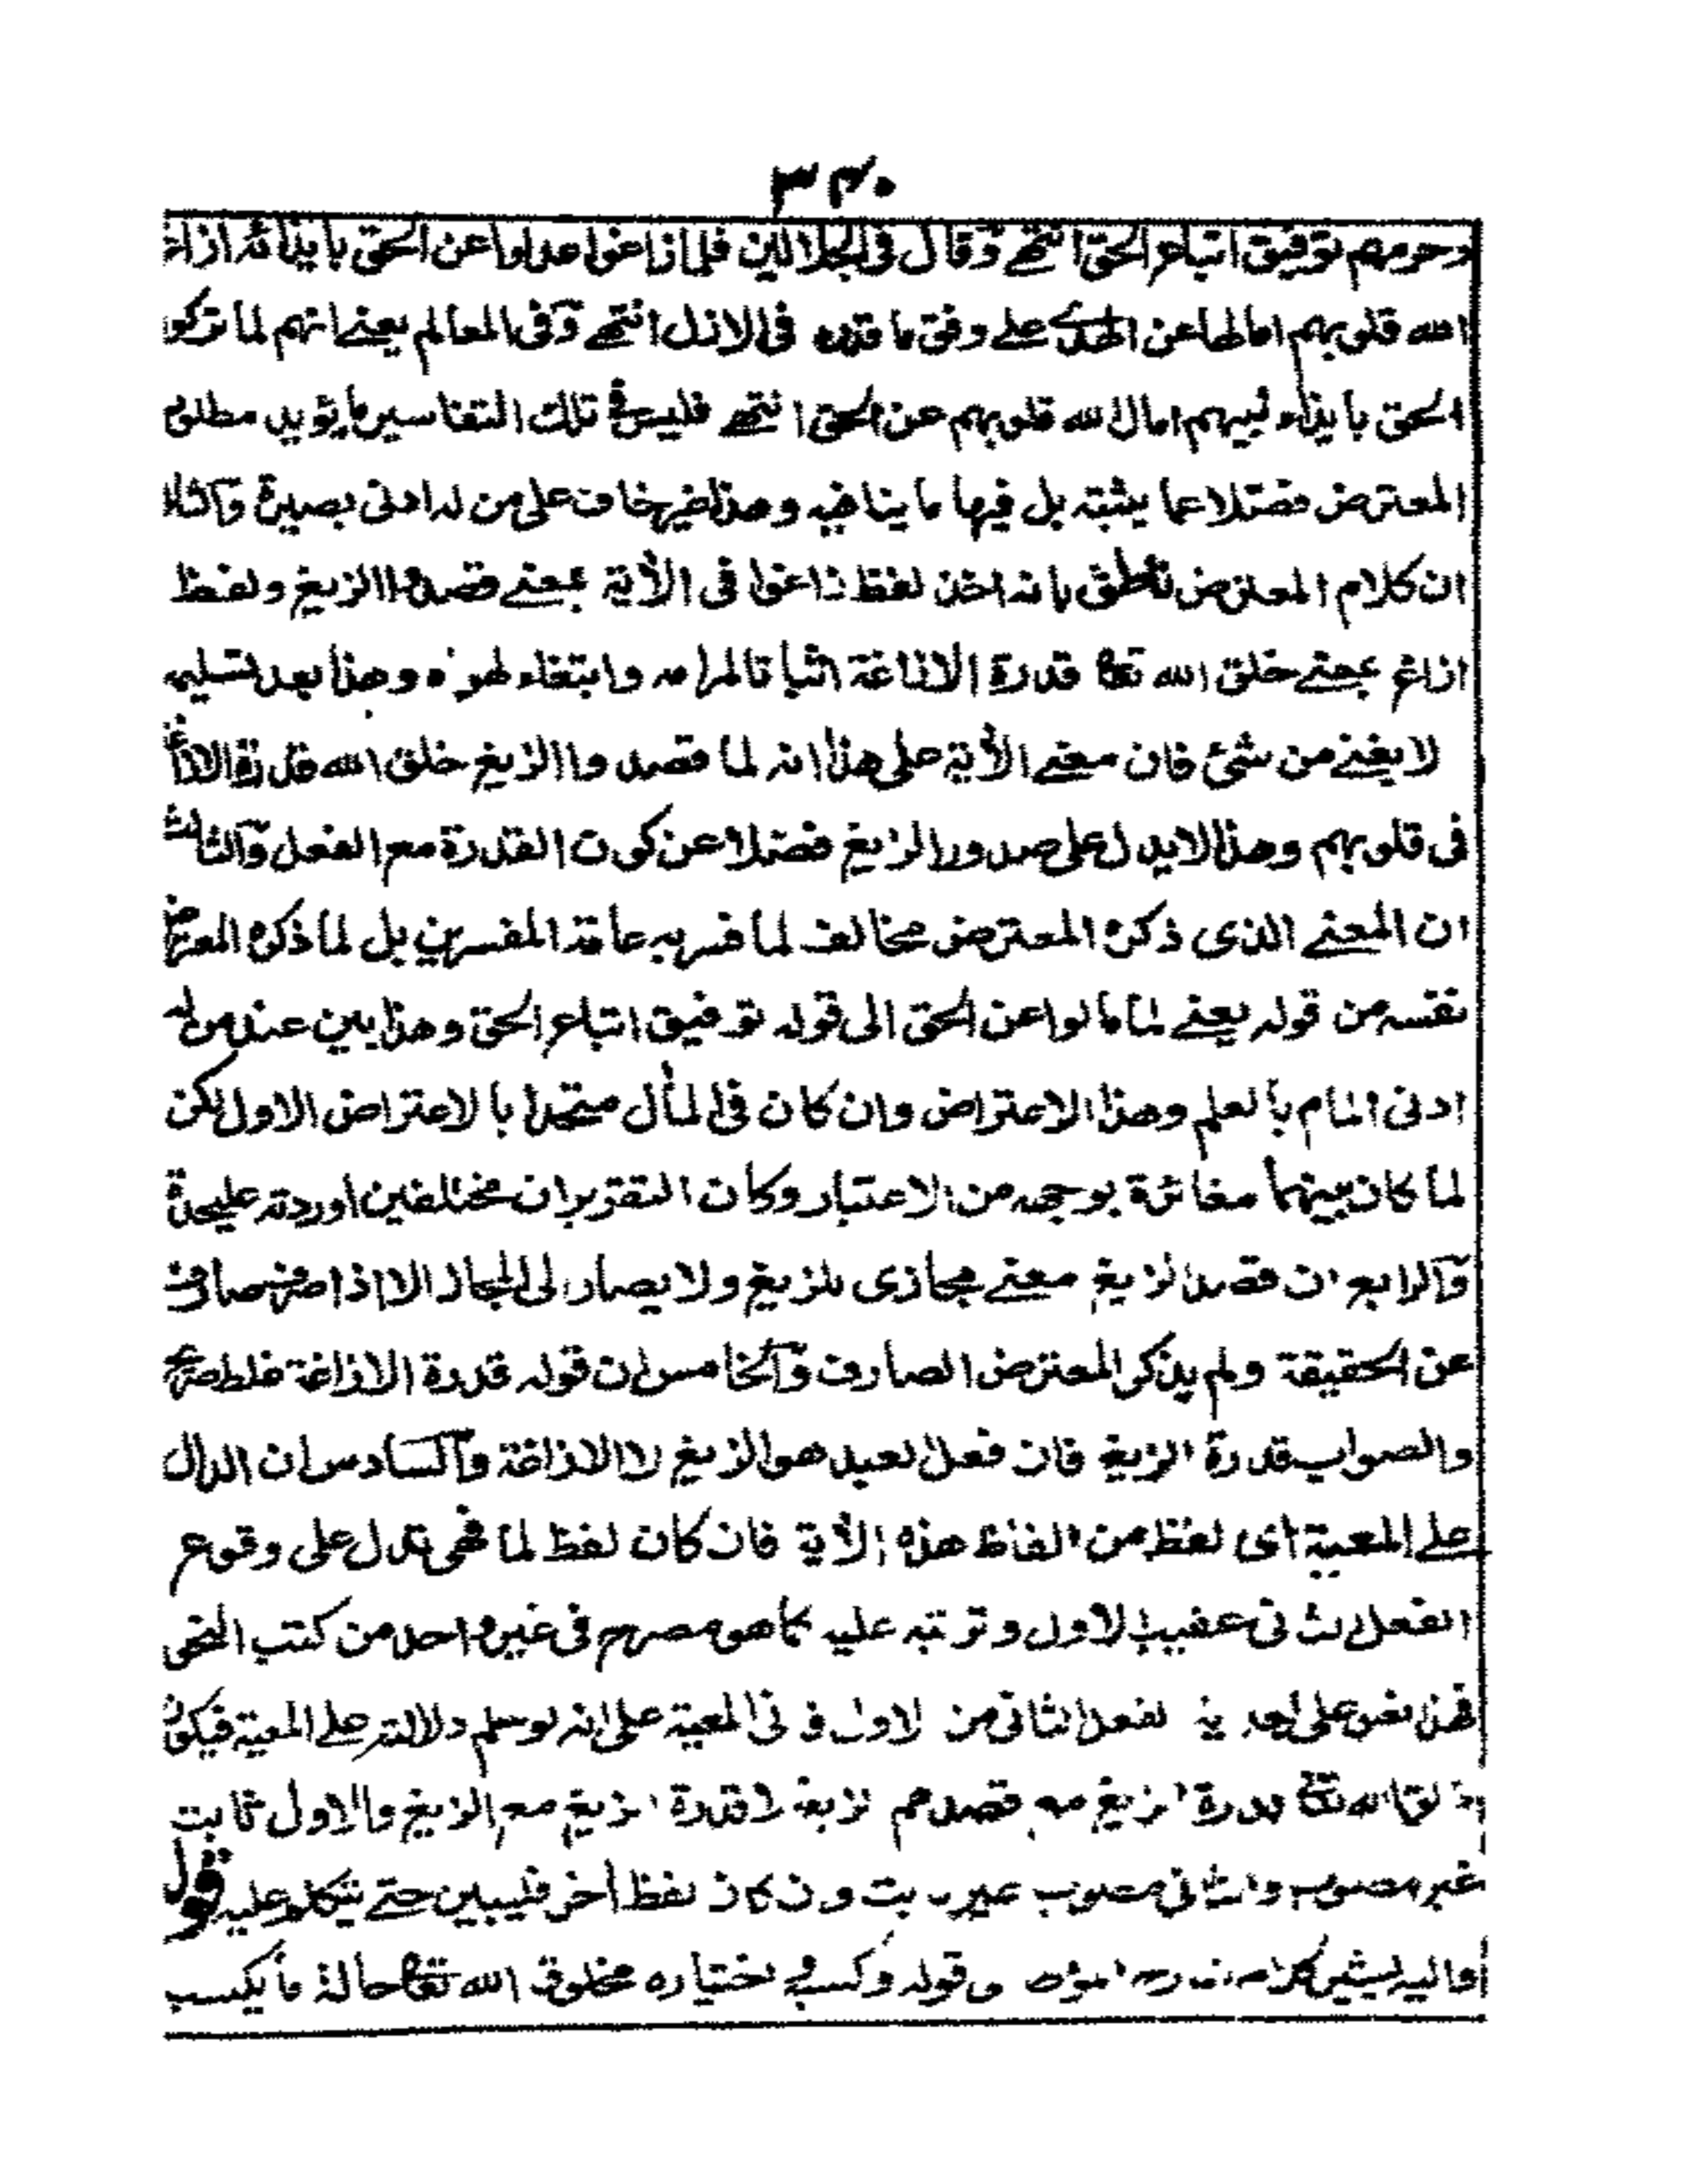 ٣٤٠
وحرمهم توفيق اتباع الحق انتهى وقال فى الجلالين فلما زاغوا عدلوا عن الحق بايذائه ازاغ
الله قلوبهم امالها عن الهدى على وفق ما قدره فى الازل انتهى وفى المعالم يعنى انهم لما تركوا
الحق بايذاء نبيهم امال الله قلوبهم عن الحق انتهى فليس فى تلك التفاسير ما يؤيد مطلوب
المعترض فضلا عما يثبته بل فيها ما ينافيه وهذا غير خاف على من له ادنى بصيرة والثانى
ان كلام المعترض ناطق بانه اخذ لفظ زاغوا فى الأية بمعنى قصدوا الزيغ ولفظ
ازاغ بمعنى خلق الله تعا قدرة الازاغة اثباتا لمرامه وابتغاء لهواه وهذا بعد تسليمه
لا يغنى من شئ فان معنى الأية على هذا انه لما قصدوا الزيغ خلق الله قدرة الازاغة
فى قلوبهم وهذا لا يدل على صدور الزيغ فضلا عن كون القدرة مع الفعل والثالث
ان المعنى الذى ذكره المعترض مخالف لما فسر به عامة المفسرين بل لما ذكره المعترض
نفسه من قوله يعنى لما مالوا عن الحق الى قوله توفيق اتباع الحق وهذا بين عند من له
ادنى المام بالعلم وهذا الاعتراض وان كان فى المأل متحدا بالاعتراض الاول لكن
لما كان بينهما مغائرة بوجه من الاعتبار وكان التقريران مختلفين اوردته عليحدة
والرابع ان قصد الزيغ معنى مجازى للزيغ ولا يصار الى المجاز الا اذا صرف صارف
عن الحقيقة ولم يذكر المعترض الصارف والخامس ان قوله قدرة الازاغة غلط صريح
والصواب قدرة الزيغ فان فعل العبد هو الزيغ لا الازاغة والسادس ان الدال
على المعية اى لفظ من الفاظ هذه الأية فان كان لفظ لما فهى تدل على وقوع
الفعل الثانى عقيب الاول وترتبه عليه كما هو مصرح فى غير واحد من كتب النحو
فهذا نص على بعدية الفعل الثانى من الاول فى المعية على انه لو سلم دلالته على المعية فيكون
خلق الله تعا قدرة الزيغ مع قصدهم الزيغ لا قدرة الزيغ مع الزيغ والاول ثابت
غير مطلوب والثانى مطلوب غير ثابت وان كان لفظ أخر فليبين حتى يتكلم عليه قوله
واليه يشير كلام قوله وكسبه اختياره مخلوق الله تعا حالة ما يكسب